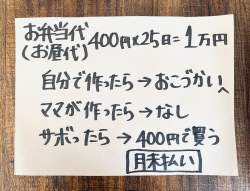 お弁当代
(お昼代) 400円×25日=1万円
自分で作ったら→おこづかいへ
ママが作ったら→なし
サボったら→400円で買う
月末払い